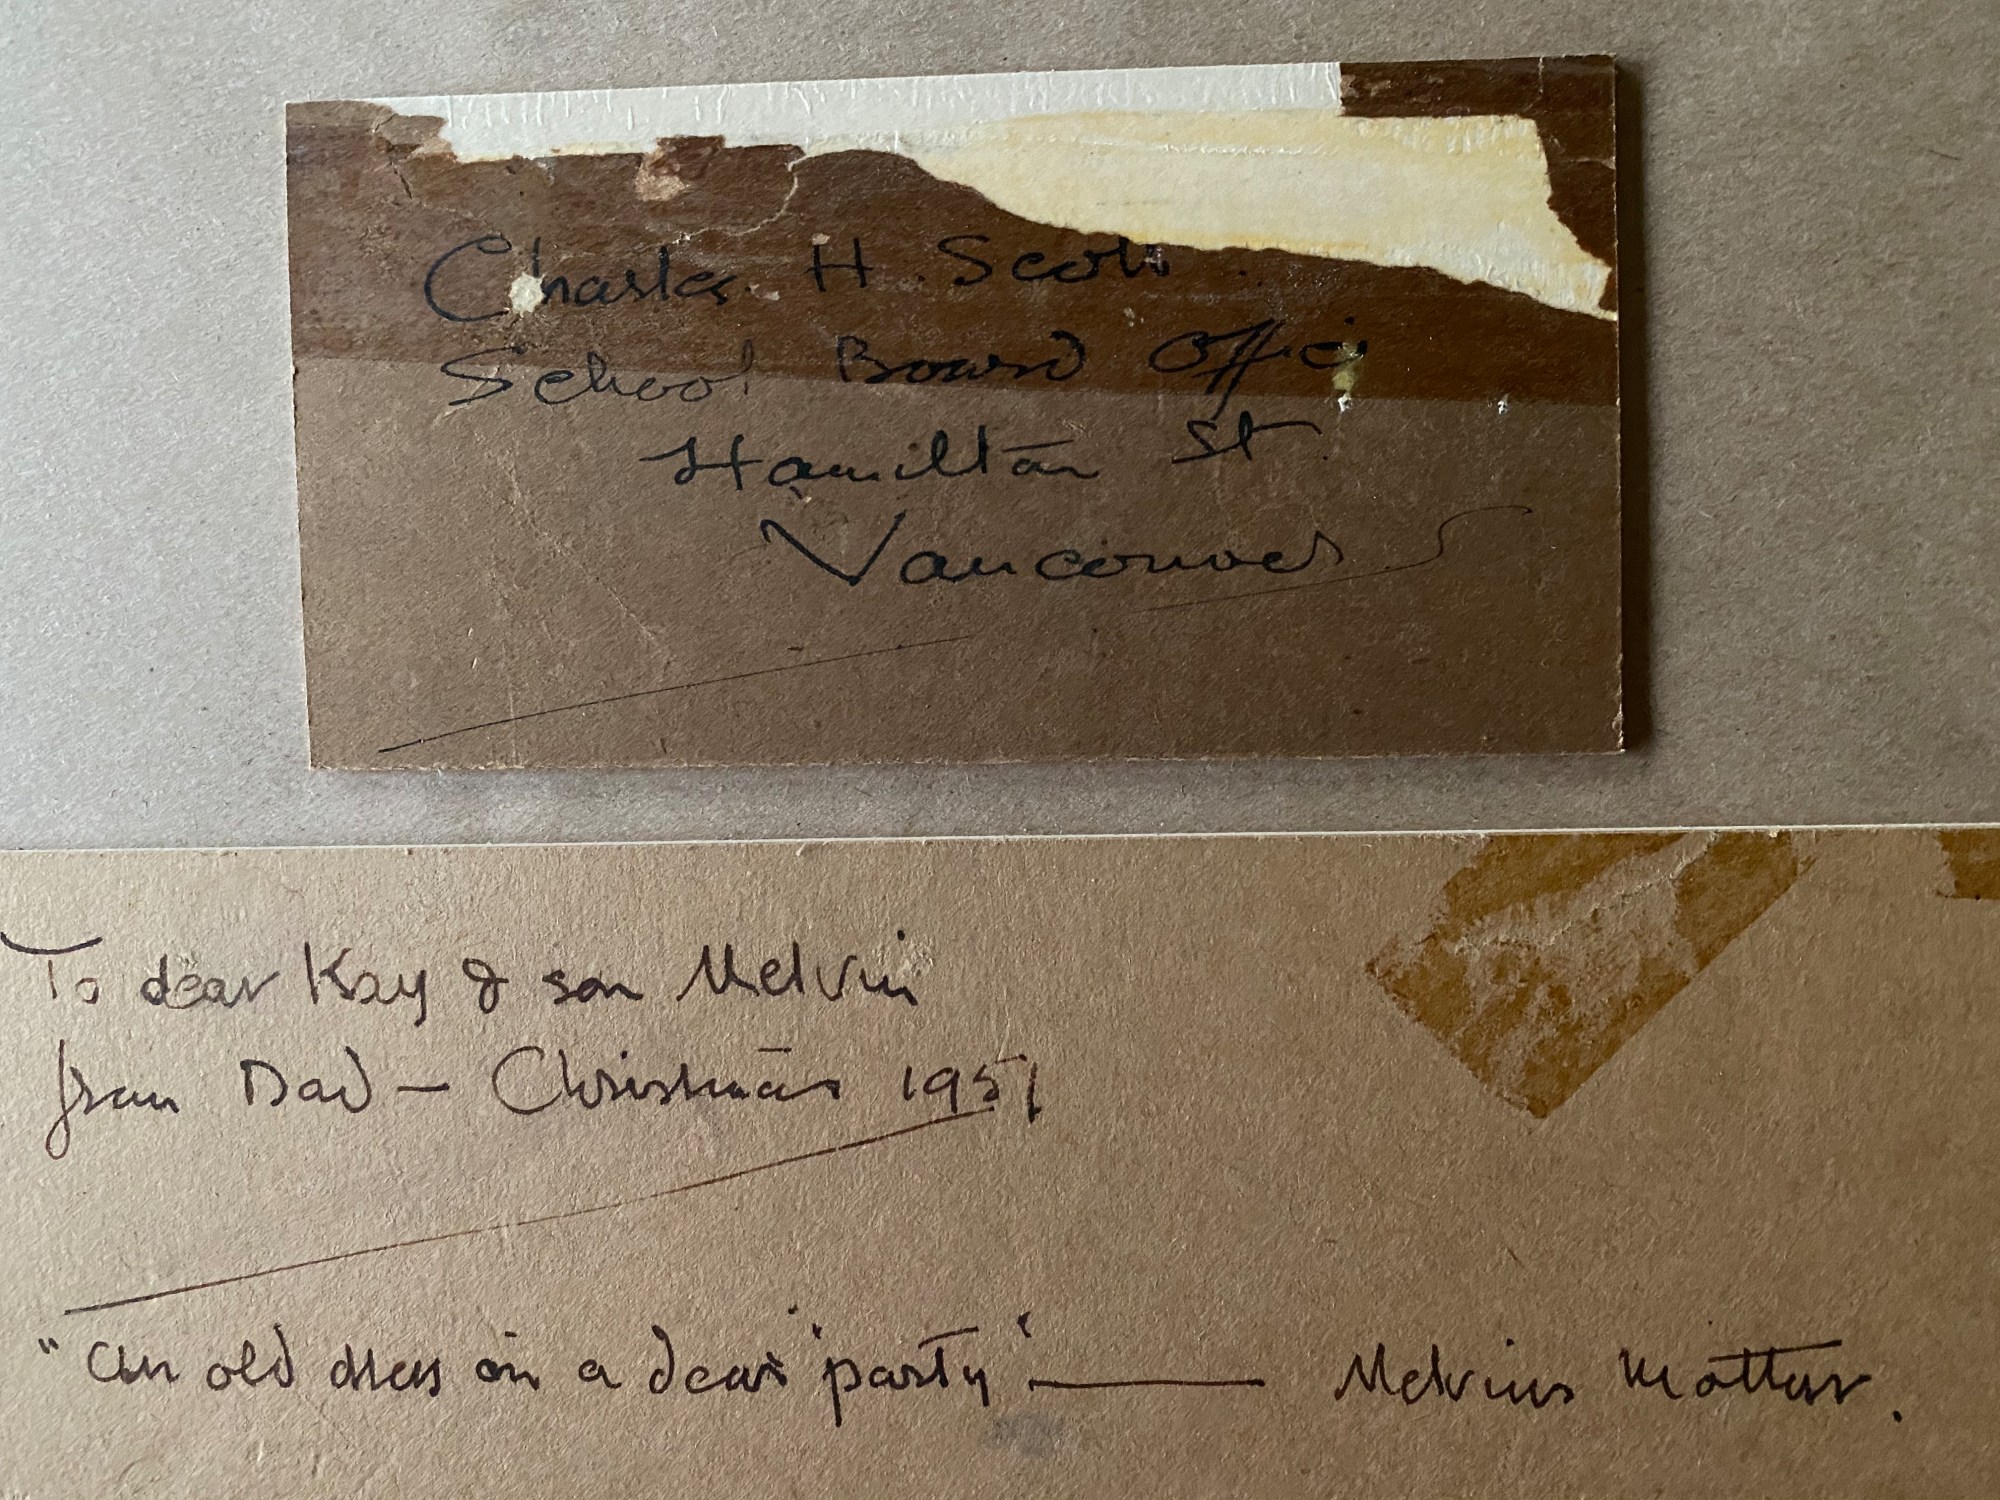 Charles H. Scott.
School Board Office
Hamilton St.
Vancouver
To dear Kay & son Melvin
from Dad — Christmas 1951
"An old dress on a dear 'party' — Melvins mottar.